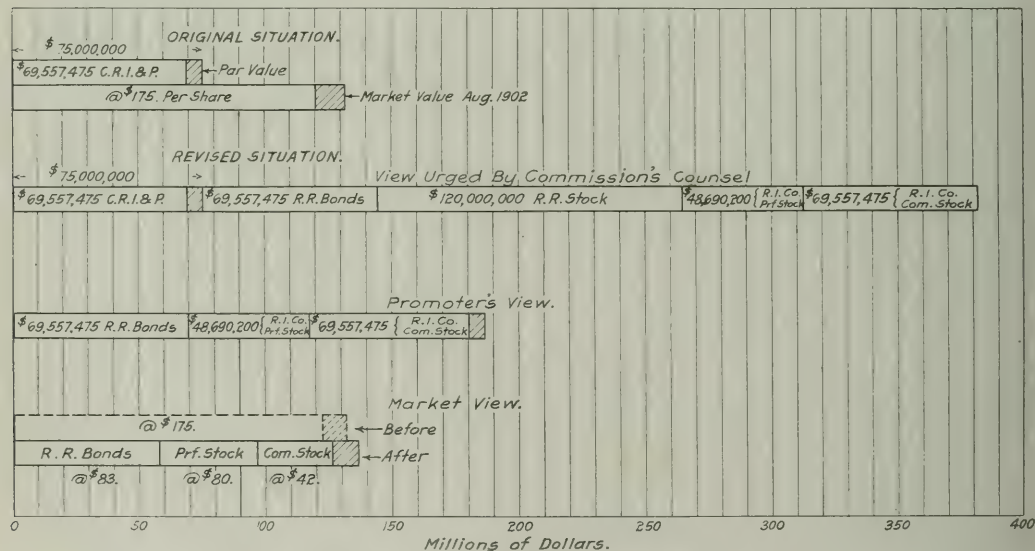 ORIGINAL SITUATION.
$75,000,000
$69,557,475 C.R.I.& P.
Par Value
@ $175. Per Share
Market Value Aug. 1902
REVISED SITUATION.
$75,000,000
View Urged By Commission's Counsel
$69,557,475 C.R.I.& P.
$69,557,475 R.R. Bonds
$120,000,000 R.R. Stock
$48,690,200 { R.I. Co. Prf. Stock
$69,557,475 { R.I. Co. Com. Stock
Promoter's View.
$69,557,475 R.R. Bonds
$48,690,200 { R.I. Co. Prf. Stock
$69,557,475 { R.I. Co. Com. Stock
Market View.
@ $175.
Before
R.R. Bonds
Prf. Stock
Com. Stock
After
@ $83.
@ $80.
@ $42.
0 50 100 150 200 250 300 350 400
Millions of Dollars.